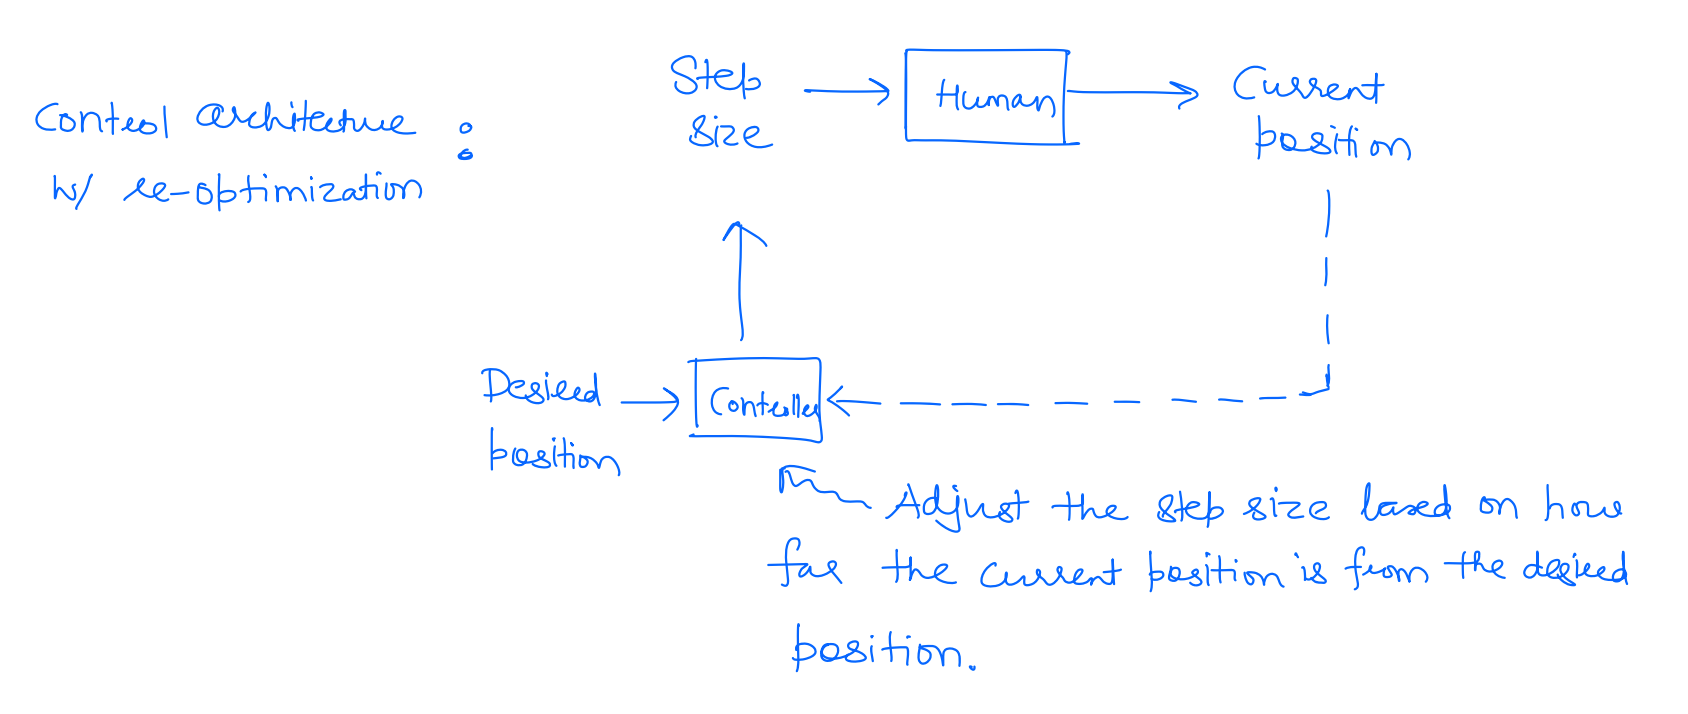 Control architecture :
w/ re-optimization
Step
size
Human
Current
position
Desired
position
Controller
Adjust the step size based on how
far the current position is from the desired
position.